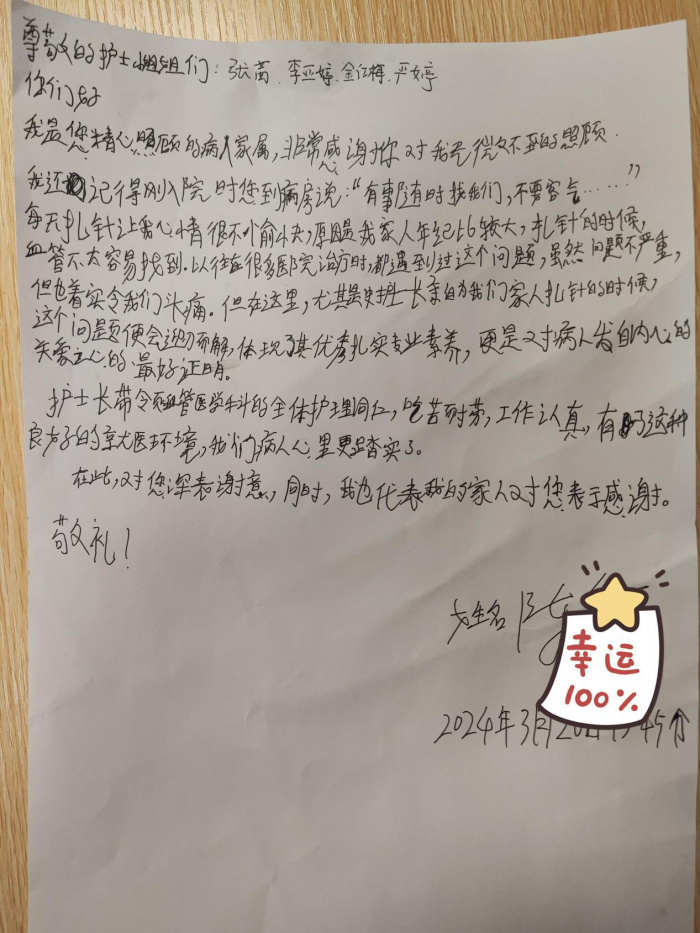 尊敬的护士姐姐们：张茵、李亚婷、金红梅、严婷
你们好
我是您精心照顾的病人家属，非常感谢你对我无微不至的照顾.
我还记得刚入院时您到病房说：“有事随时找我们，不要客气……”
每天扎针让我心情很不愉快，原因是我家人年纪比较大，扎针的时候，
血管不太容易找到.以往在很多医院治疗时，都遇到过这个问题，虽然问题不严重，
但也着实令我们头痛。但在这里，尤其是护士长亲自为我们家人扎针的时候，
这个问题便会迎刃而解，体现了其优秀扎实专业素养，更是对病人发自内心的
关爱之心的最好证明。
护士长带领血管医学科的全体护理同仁，吃苦耐劳，工作认真，有了这种
良好的就医环境，我们病人心里更踏实了。
在此，对您深表谢意，同时，我也代表我的家人对您表示感谢。
敬礼！
姓名
幸运
100%
2024年3月